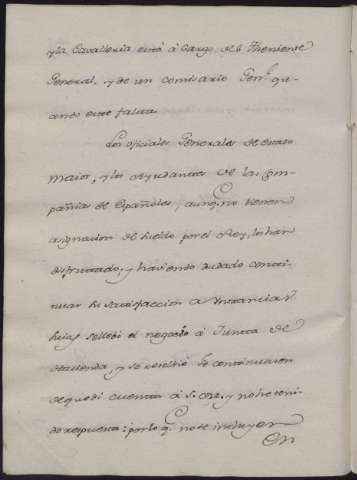 y la Cavalleria está á Cargo de el Theniente
General, y de un comisario Gen.l qu-
ando este falta.
Los oficiales Generales de estado
maior, y los Ayudantes de las Com-
pañias de Españoles, aunq.e no tienen
asignacion de sueldo por el Rey, lo han
disfrutado; y haviendo dudado conti-
nuar su satisfaccion a instancia
se llebó el negocio á Junta de
Hacienda, y se resolvió la continuacion
de que di cuenta á S. Ex.a, y no he teni-
do respuesta: por lo q.e no se incluyen
En